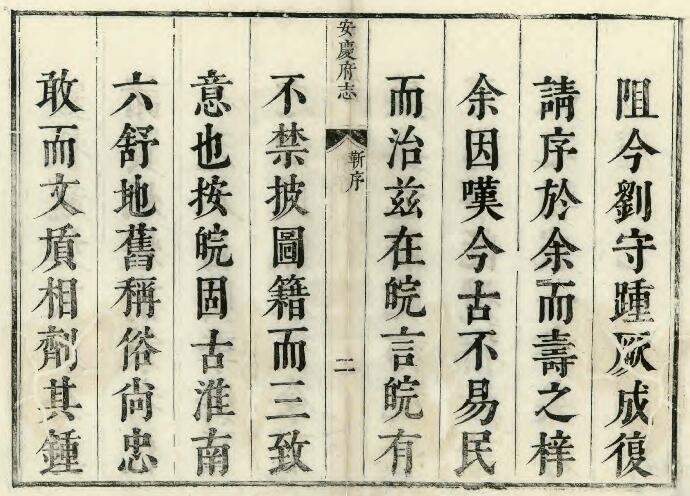 阻今劉守踵厥成復
請序於余而壽之梓
余因嘆今古不易民
而治兹在皖言皖有
安慶府志
靳序
二
不禁披圖籍而三致
意也按皖固古淮南
六舒地舊稱俗尙忠
敢而文質相劑其鍾